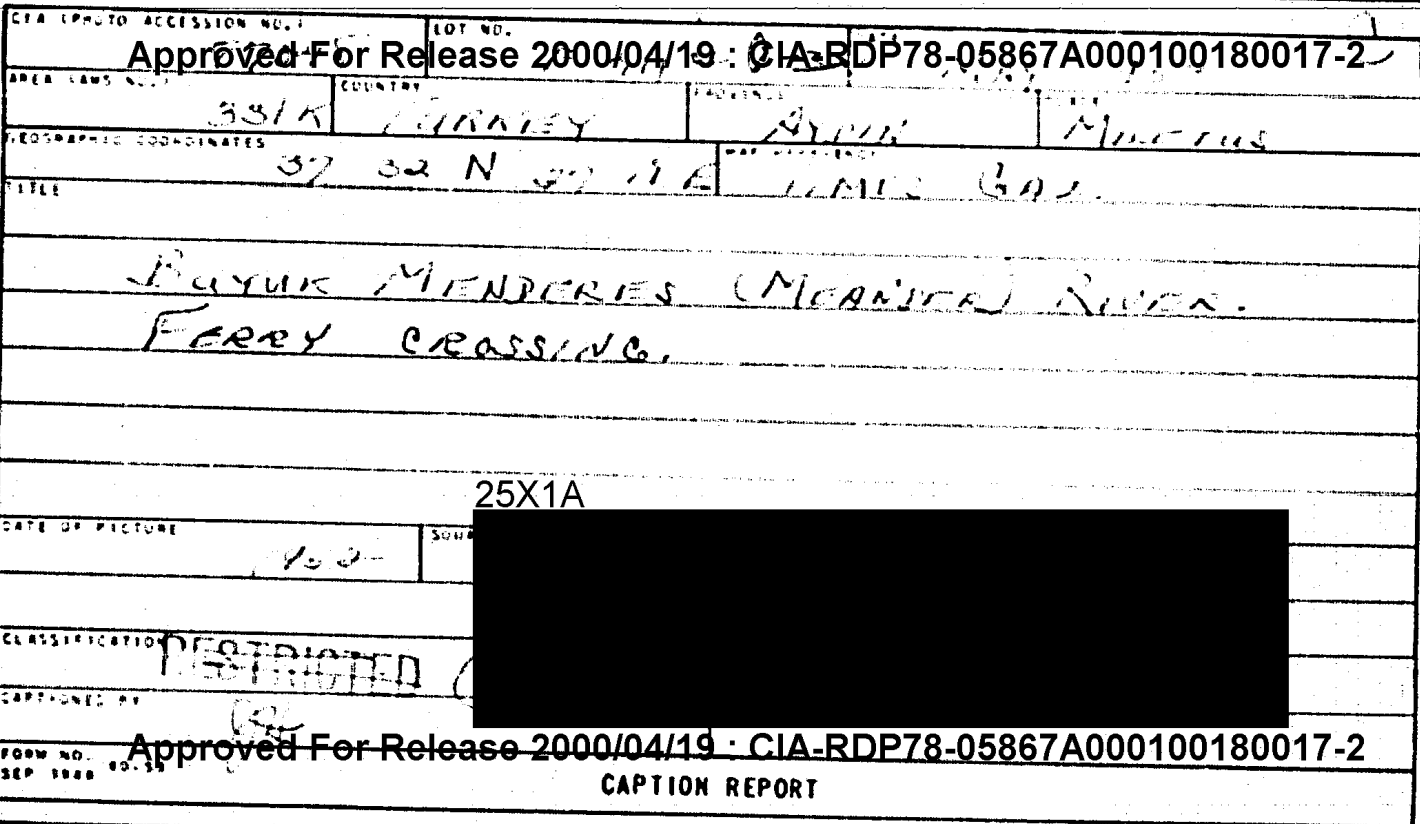 CIA (PHOTO ACCESSION NO.) LOT NO.
Approved For Release 2000/04/19 : CIA-RDP78-05867A000100180017-2
AREA (AMS NO.) COUNTRY PROVINCE
331K TURKEY AYDIN MILETUS
GEOGRAPHIC COORDINATES MAP REFERENCE
37 32 N 27 E GAZ.
TITLE
BUYUK MENDERES (MEANDER) RIVER.
FERRY CROSSING.
25X1A
DATE OF PICTURE
CLASSIFICATION RESTRICTED
CAPTIONED BY
Approved For Release 2000/04/19 : CIA-RDP78-05867A000100180017-2
FORM NO.
SEP
CAPTION REPORT